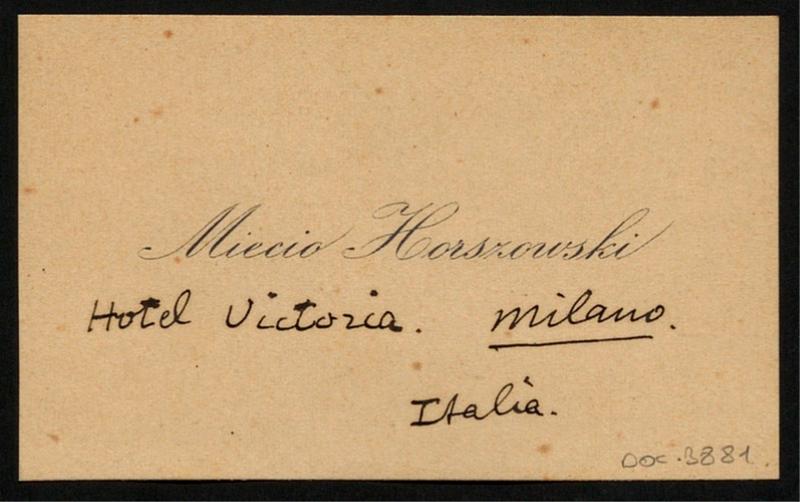 Miecio Horszowski
Hotel Victoria. Milano.
Italia.
DOC. 3881